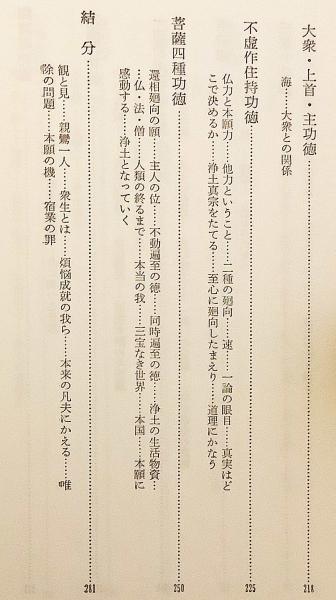 大衆・上首・主功徳……………218
海……大衆との関係
不虚作住持功徳……………225
仏力と本願力……他力ということ……二種の廻向……速……一論の眼目……真実はど
こで決めるか……浄土真宗をたてる……至心に廻向したまえり……道理にかなう
菩薩四種功徳……………250
還相廻向の願……主人の位……不動遍至の徳……同時遍至の徳……浄土の生活物資…
…仏・法・僧……人類の終るまで……本当の我……三宝なき世界……本国……本願に
感動する……浄土となっていく
結分……………281
観と見……親鸞一人……衆生とは……煩悩成就の我ら……本来の凡夫にかえる……唯
除の問題……本願の機……宿業の罪